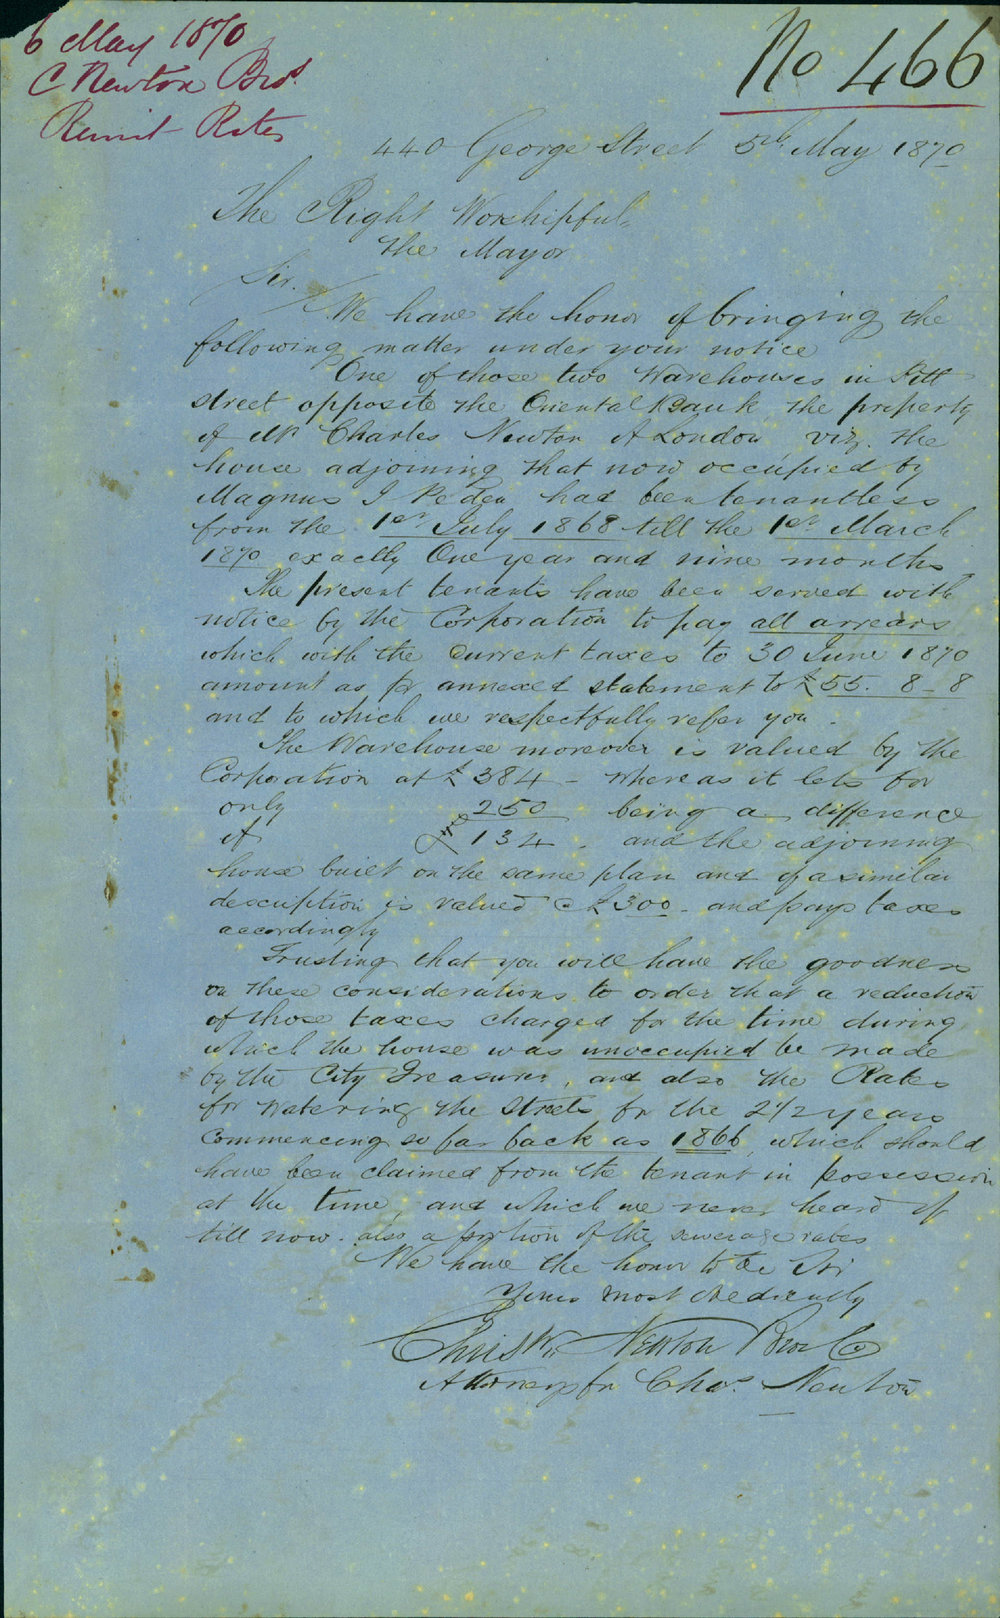 6 May 1870
C Newton Bros.
Remit Rates
No 466
440 George Street 5th. May 1870
The Right Worshipful,
the Mayor
Sir.
We have the honor of bringing the
following matter under your notice
One of those two Warehouses in Pitt
street opposite the Oriental Bank the property
of Mr Charles Newton of London viz. the
house adjoining that now occupied by
Magnus J Peden had been tenantless
from the 1st July 1868 till the 1st March
1870 exactly One year and nine months
The present tenants have been served with
notice by the Corporation to pay all arrears
which with the current taxes to 30 June 1870
amount as pr annexed statement to £55. 8-8
and to which we respectfully refer you.
The Warehouse moreover is valued by the
Corporation at £384 - whereas it lets for
only 250 being a difference
of 134 - and the adjoining
house built on the same plan and of a similar
description is valued @ £300 - and pays taxes
accordingly
Trusting that you will have the goodness
on these considerations to order that a reduction
of those taxes charged for the time during
which the house was unoccupied be made
by the City Treasurer, and also the Rates
for watering the Streets for the 2 1/2 years
commencing so far back as 1866, which should
have been claimed from the tenant in possession
at the time, and which we never heard of
till now. also a portion of the sewerage rates
We have the honor to be Sir
Yours most obediently
Newton Bros Co
Attorneys for Chas. Newton